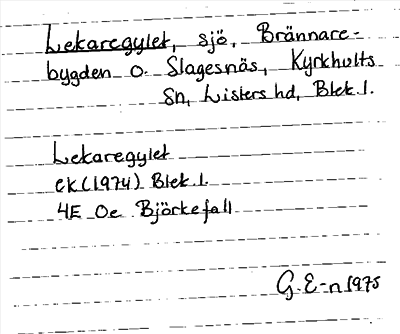 Lekaregylet, sjö, Brännare-
bygden o. Slagesnäs, Kyrkhults
Sn, Listers hd, Blek. l.
Lekaregylet
ek (1974) Blek. l.
4E Oe Björkefall
G. E-n 1975